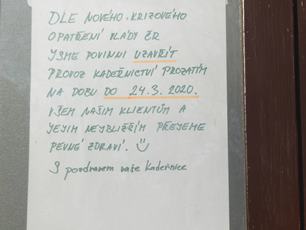 DLE NOVÉHO KRIZOVÉHO
OPATŘENÍ VLÁDY ČR
JSME POVINNI UZAVŘÍT
PROVOZ KADEŘNICTVÍ PROZATÍM
NA DOBU DO 24.3. 2020.
VŠEM NAŠIM KLIENTŮM A
JEJIM NEJBLIŽŠÍM PŘEJEME
PEVNÉ ZDRAVÍ. ☺
S pozdravem vaše Kadeřnice